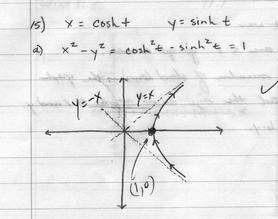 15) x = cosh t y = sinh t
a) x² - y² = cosh²t - sinh²t = 1
y=-x y=x
(1,0)